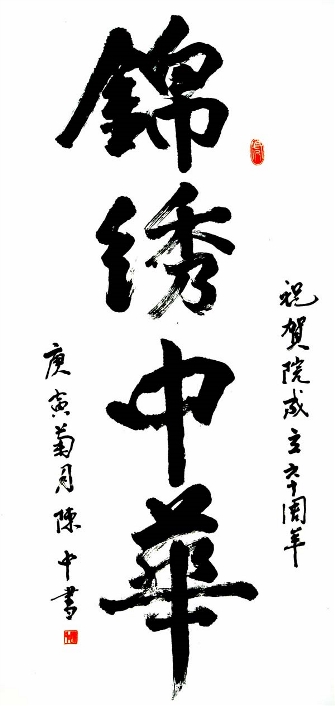 錦绣中華
祝賀院成立六十周年
庚寅菊月陳中書